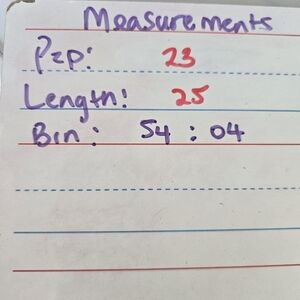 Measurements
P=p: 23
Length: 25
Bin: 54 : 04